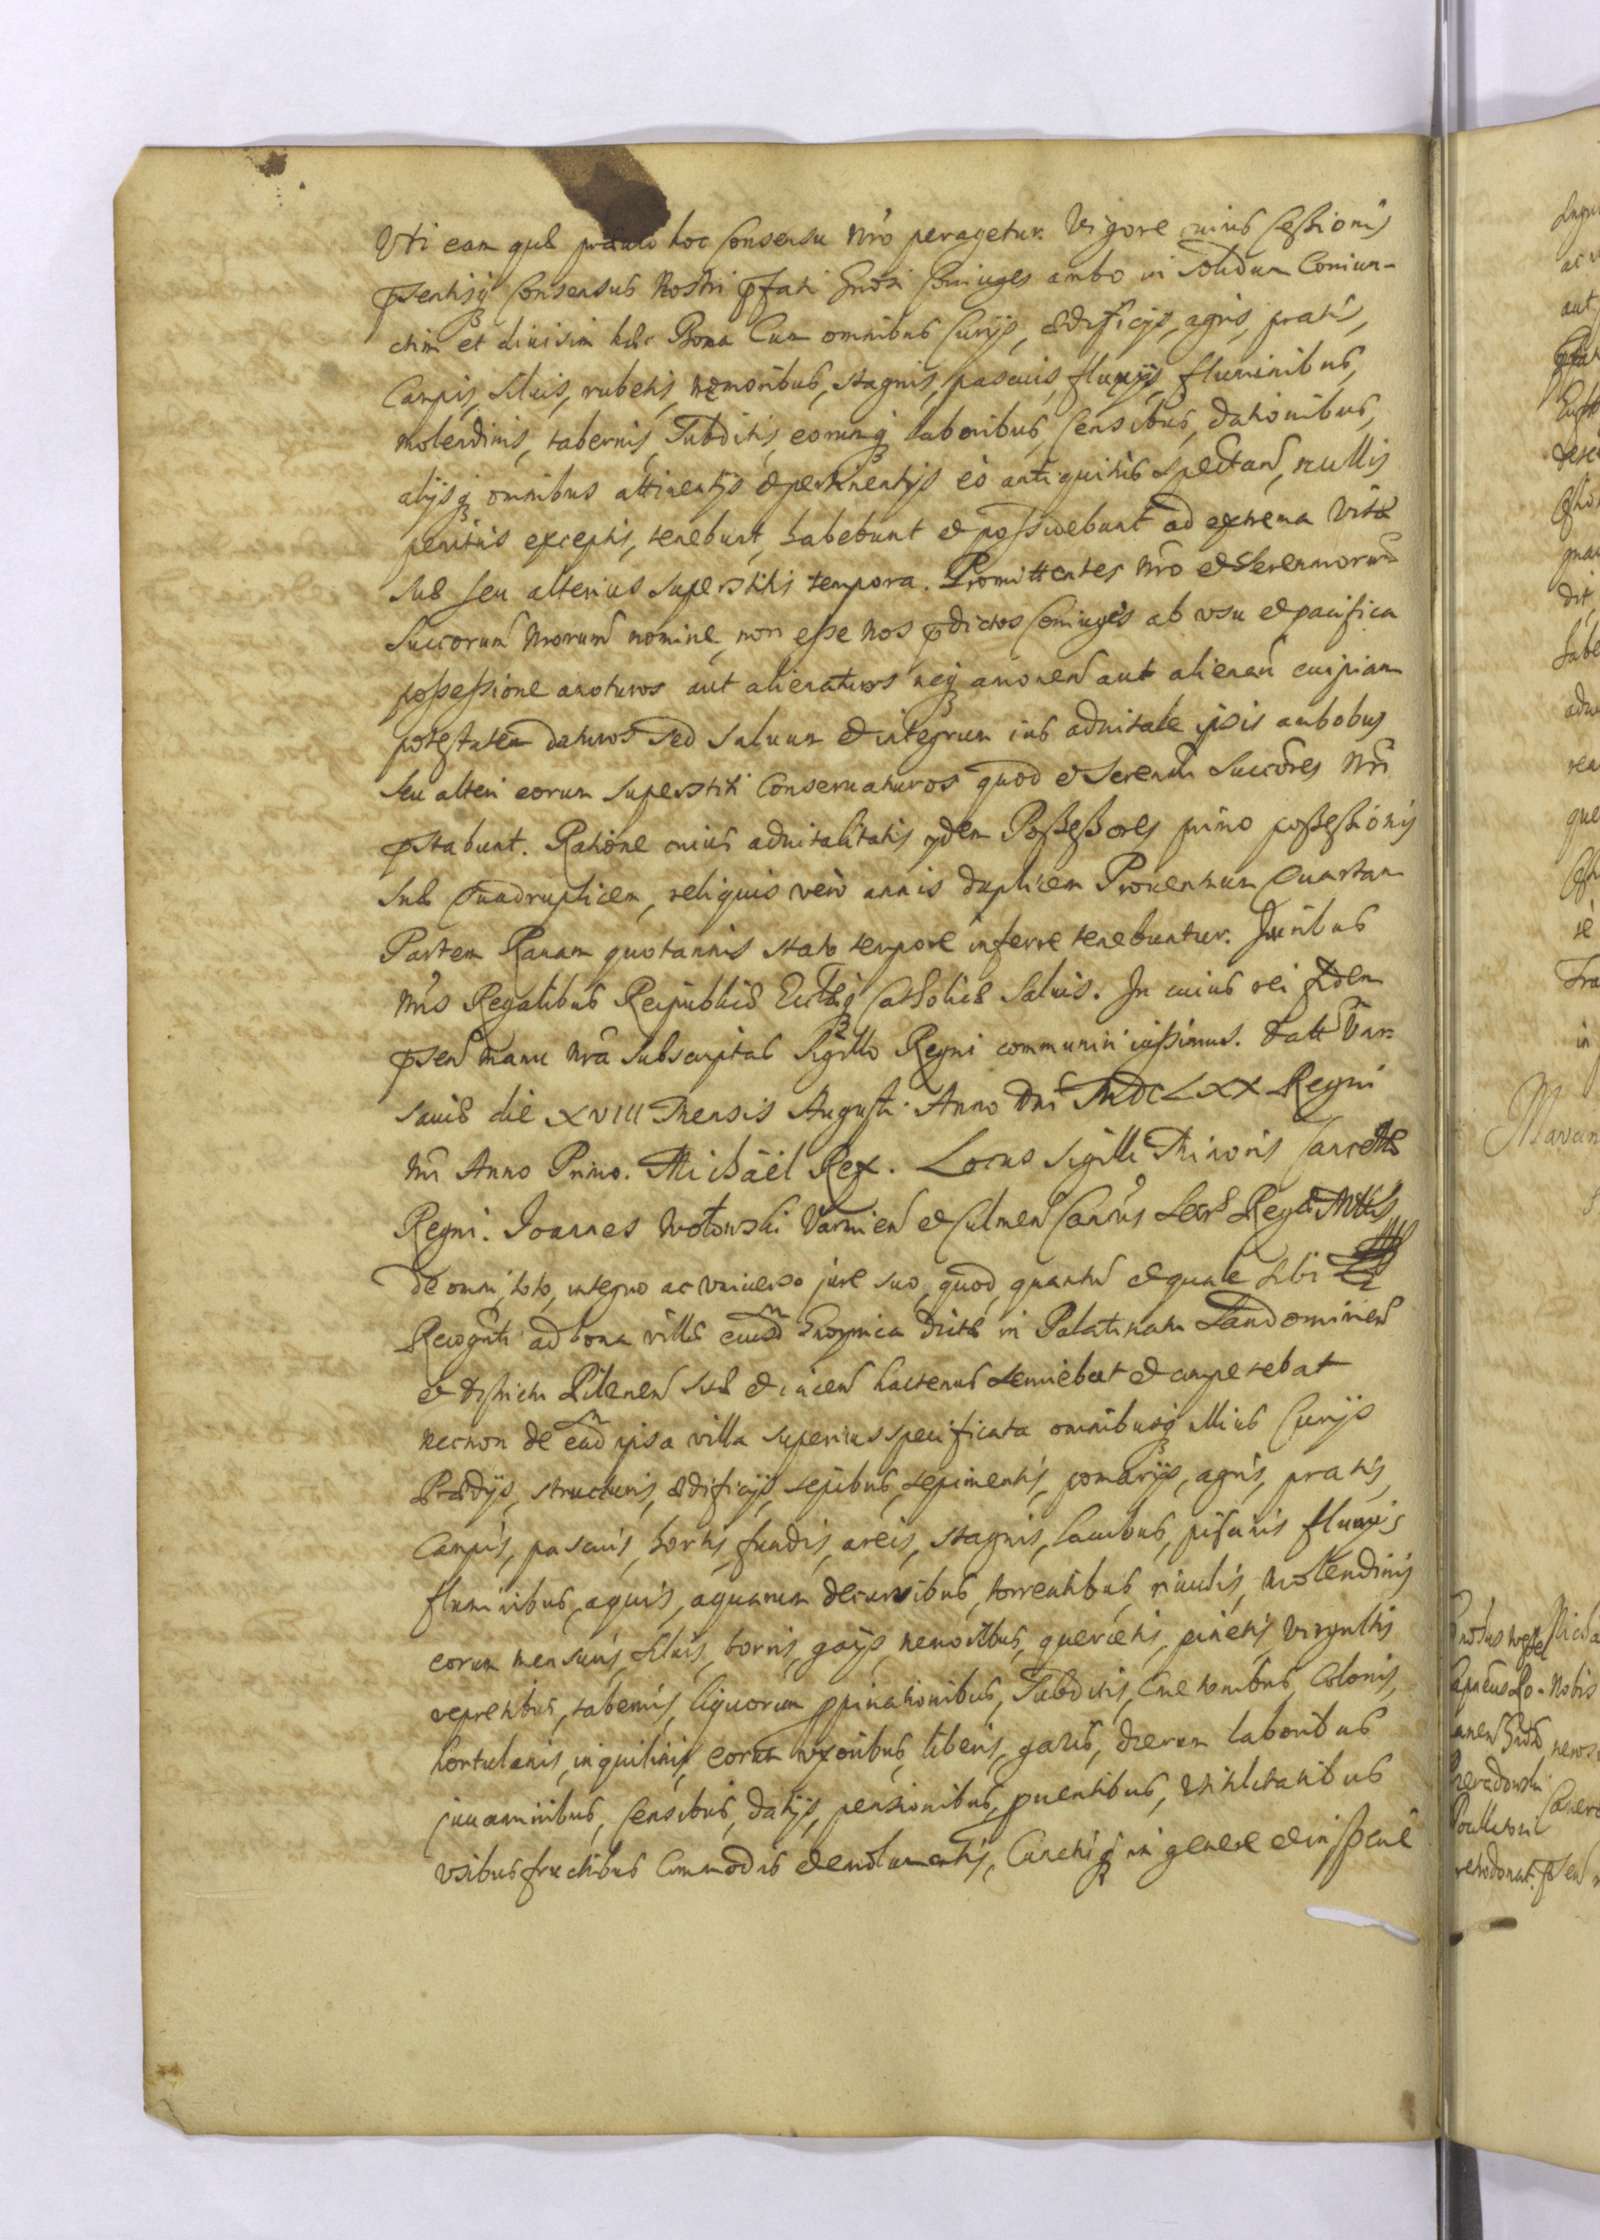 Uti eam quæ hoc Consensu nr̃o peragetur. Vigore cuius Cessionis
pr̃sentisq; Consensus Nostri pr̃fati Gn̄osi Coniuges ambo in solidum Coniun-
ctim et divisim hæc Bona Cum omnibus Curijs, ædificijs, agris, pratis,
Campis, siluis, rubetis, nemoribus, stagnis, pascuis, fluvijs, fluminibus,
molendinis, tabernis, Subditis, eorumq; laboribus, Censibus, dationibus,
alijsq; omnibus attinentijs et pertinentijs eò antiquitus spectan̄, nullis
penitus exceptis, tenebunt, habebunt et possidebunt ad extrema vitæ
suæ seu alterius superstitis tempora. Promittentes nr̃o et Serenmorum̄
Succorum̄ nr̃orum̄ nomine, non esse Nos pr̃dictos Coniuges ab usu et pacifica
possessione amoturos aut alienaturos neq; amoven̄ aut alienan̄ cuipiam
potestatem daturos sed saluum et integrum ius aduitale ipsis ambobus
seu alteri eorum superstiti Conseruaturos quod et Serenm̄i Succōres nr̃i
pr̃stabunt. Ratione cuius aduitalitatis ijdem Possessores primo possessionis
suæ quadruplicem, reliquis verò annis duplicem Prouentum Quartam
Partem Rauam quotannis stato tempore inferre tenebuntur. Iuribus
nr̃is Regalibus Reipublicæ Ecclæq; Catholicæ saluis. In cuius rei fidem
pr̃sen̄ manu nr̃a subscriptas Sigillo Regni communiri iussimus. Datt Var-
sauiæ die XVIII Mensis Augusti Anno Dn̄i MDCLXX Regni
nr̃i Anno Primo. Michaël Rex. Locus Sigilli Minoris Cancellæ
Regni. Joannes Wołowski Varmien̄ et Culmen̄ Canc̄us Secrs Regæ Mttis
De omni, toto, integro ac vniuerso jure suo, quod, quantum̄ et quale sibi
Recogn̄ti ad bona villæ eiusd̄ dictæ in Palatinatu Sandomirien̄
et districtu Pilznen̄ sitæ et iacen̄ hactenus seruiebat et competebat
necnon de ead̄ ipsa villa superius specificata omnibusq; illius Curijs
Prædijs, structuris, ædificijs, sepibus, sepimentis, pomarijs, agris, pratis,
Campis, pascuis, hortis, fundis, areis, stagnis, lacubus, piscinis fluvijs
fluminibus, aquis, aquarum decursibus, torrentibus, riuulis, molendinis
eorum mensuris, siluis, borris, gaijs, nemoribus, quercetis, pinetis, virgultis
vepretibus, tabernis, liquorum propinationibus, Subditis, Cmetonibus, Colonis,
hortulanis, inquilinis, eorum vxoribus, liberis, gazis, dierum laboribus
juuaminibus, Censibus, datijs, pensionibus, prouentibus, utilitatibus
vsibusfructibus Commodis et emolumentis, Cunctisq; in genere et in specie